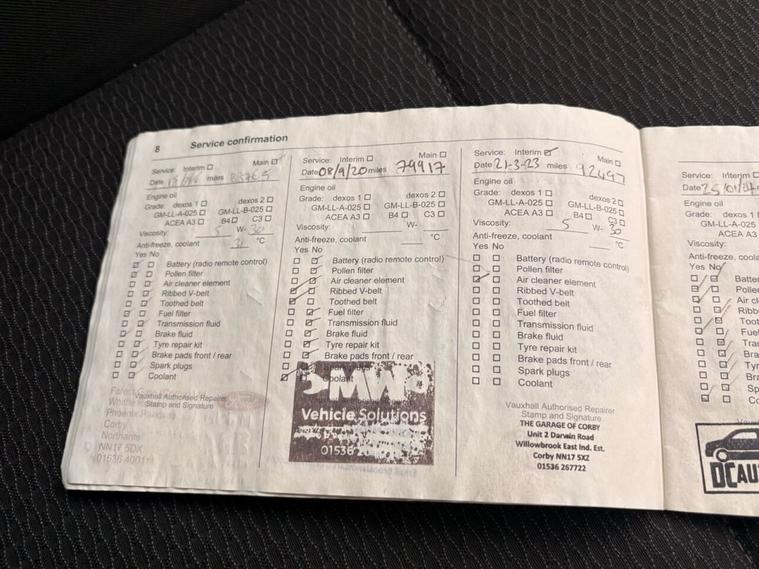 8 Service confirmation
Service: Interim Main
Date miles
Engine oil
Grade: dexos 1 dexos 2
GM-LL-A-025 GM-LL-B-025
ACEA A3 B4 C3
Viscosity: 5 W- 30
Anti-freeze, coolant °C
Yes No
Battery (radio remote control)
Pollen filter
Air cleaner element
Ribbed V-belt
Toothed belt
Fuel filter
Transmission fluid
Brake fluid
Tyre repair kit
Brake pads front / rear
Spark plugs
Coolant
Vauxhall Authorised Repairer
Stamp and Signature
Corby
Northants
NN17 5DX
01536
Service: Interim Main
Date 08/9/20 miles 79917
Engine oil
Grade: dexos 1 dexos 2
GM-LL-A-025 GM-LL-B-025
ACEA A3 B4 C3
Viscosity: W-
Anti-freeze, coolant °C
Yes No
Battery (radio remote control)
Pollen filter
Air cleaner element
Ribbed V-belt
Toothed belt
Fuel filter
Transmission fluid
Brake fluid
Tyre repair kit
Brake pads front / rear
Coolant
Vehicle Solutions
01536
Service: Interim Main
Date 21-3-23 miles 92497
Engine oil
Grade: dexos 1 dexos 2
GM-LL-A-025 GM-LL-B-025
ACEA A3 B4 C3
Viscosity: 5 W- 30
Anti-freeze, coolant °C
Yes No
Battery (radio remote control)
Pollen filter
Air cleaner element
Ribbed V-belt
Toothed belt
Fuel filter
Transmission fluid
Brake fluid
Tyre repair kit
Brake pads front / rear
Spark plugs
Coolant
Vauxhall Authorised Repairer
Stamp and Signature
THE GARAGE OF CORBY
Unit 2 Darwin Road
Willowbrook East Ind. Est.
Corby NN17 5XZ
01536 267722
Service: Interim
Date
Engine oil
Grade: dexos 1
GM-LL-A-025
ACEA A3
Viscosity:
Anti-freeze, coola
Yes No
Batte
Polle
Air cl
Ribb
Toot
Fuel
Tra
Bra
Tyr
Bra
Sp
Co
DC AU